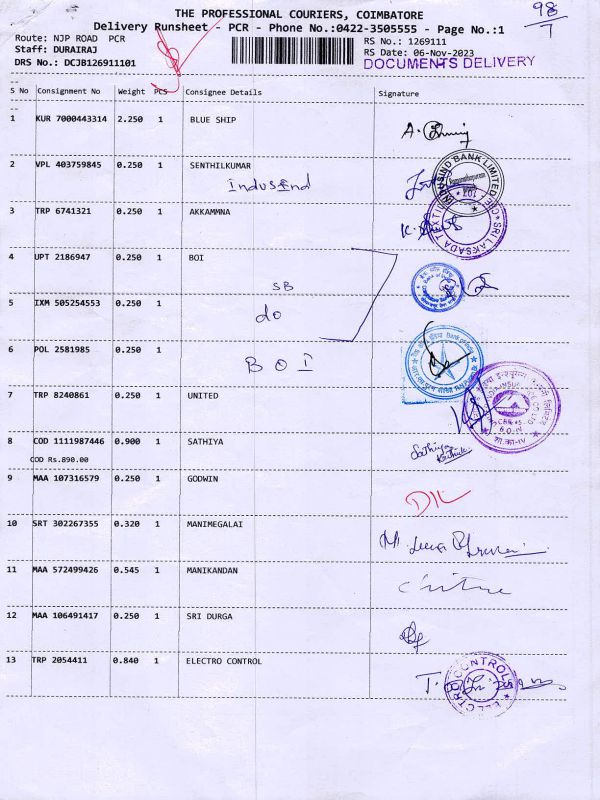 98/1
THE PROFESSIONAL COURIERS, COIMBATORE
Delivery Runsheet - PCR - Phone No.:0422-3505555 - Page No.:1
Route: NJP ROAD PCR
RS No.: 1269111
Staff: DURAIRAJ
RS Date: 06-Nov-2023
DRS No.: DCJB126911101
DOCUMENTS DELIVERY
S No Consignment No Weight PCS Consignee Details Signature
1 KUR 7000443314 2.250 1 BLUE SHIP
2 VPL 403759845 0.250 1 SENTHILKUMAR
IndusInd
INDUSIND BANK LIMITED
3 TRP 6741321 0.250 1 AKKAMMNA
SRI LAKSADA TEXTI
4 UPT 2186947 0.250 1 BOI
SB
5 IXM 505254553 0.250 1
do
6 POL 2581985 0.250 1
BOI
7 TRP 8240861 0.250 1 UNITED
8 COD 1111987446 0.900 1 SATHIYA
Sathiya
COD Rs.890.00
9 MAA 107316579 0.250 1 GODWIN
DIL
10 SRT 302267355 0.320 1 MANIMEGALAI
11 MAA 572499426 0.545 1 MANIKANDAN
12 MAA 106491417 0.250 1 SRI DURGA
13 TRP 2054411 0.840 1 ELECTRO CONTROL
ELECTROCONTROLS